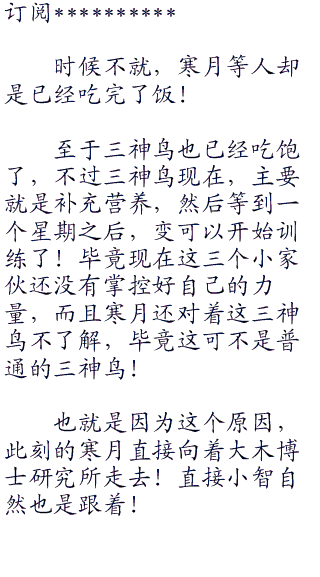 订阅**********
时候不就，寒月等人却
是已经吃完了饭！
至于三神鸟也已经吃饱
了，不过三神鸟现在，主要
就是补充营养，然后等到一
个星期之后，变可以开始训
练了！毕竟现在这三个小家
伙还没有掌控好自己的力
量，而且寒月还对着这三神
鸟不了解，毕竟这可不是普
通的三神鸟！
也就是因为这个原因，
此刻的寒月直接向着大木博
士研究所走去！直接小智自
然也是跟着！